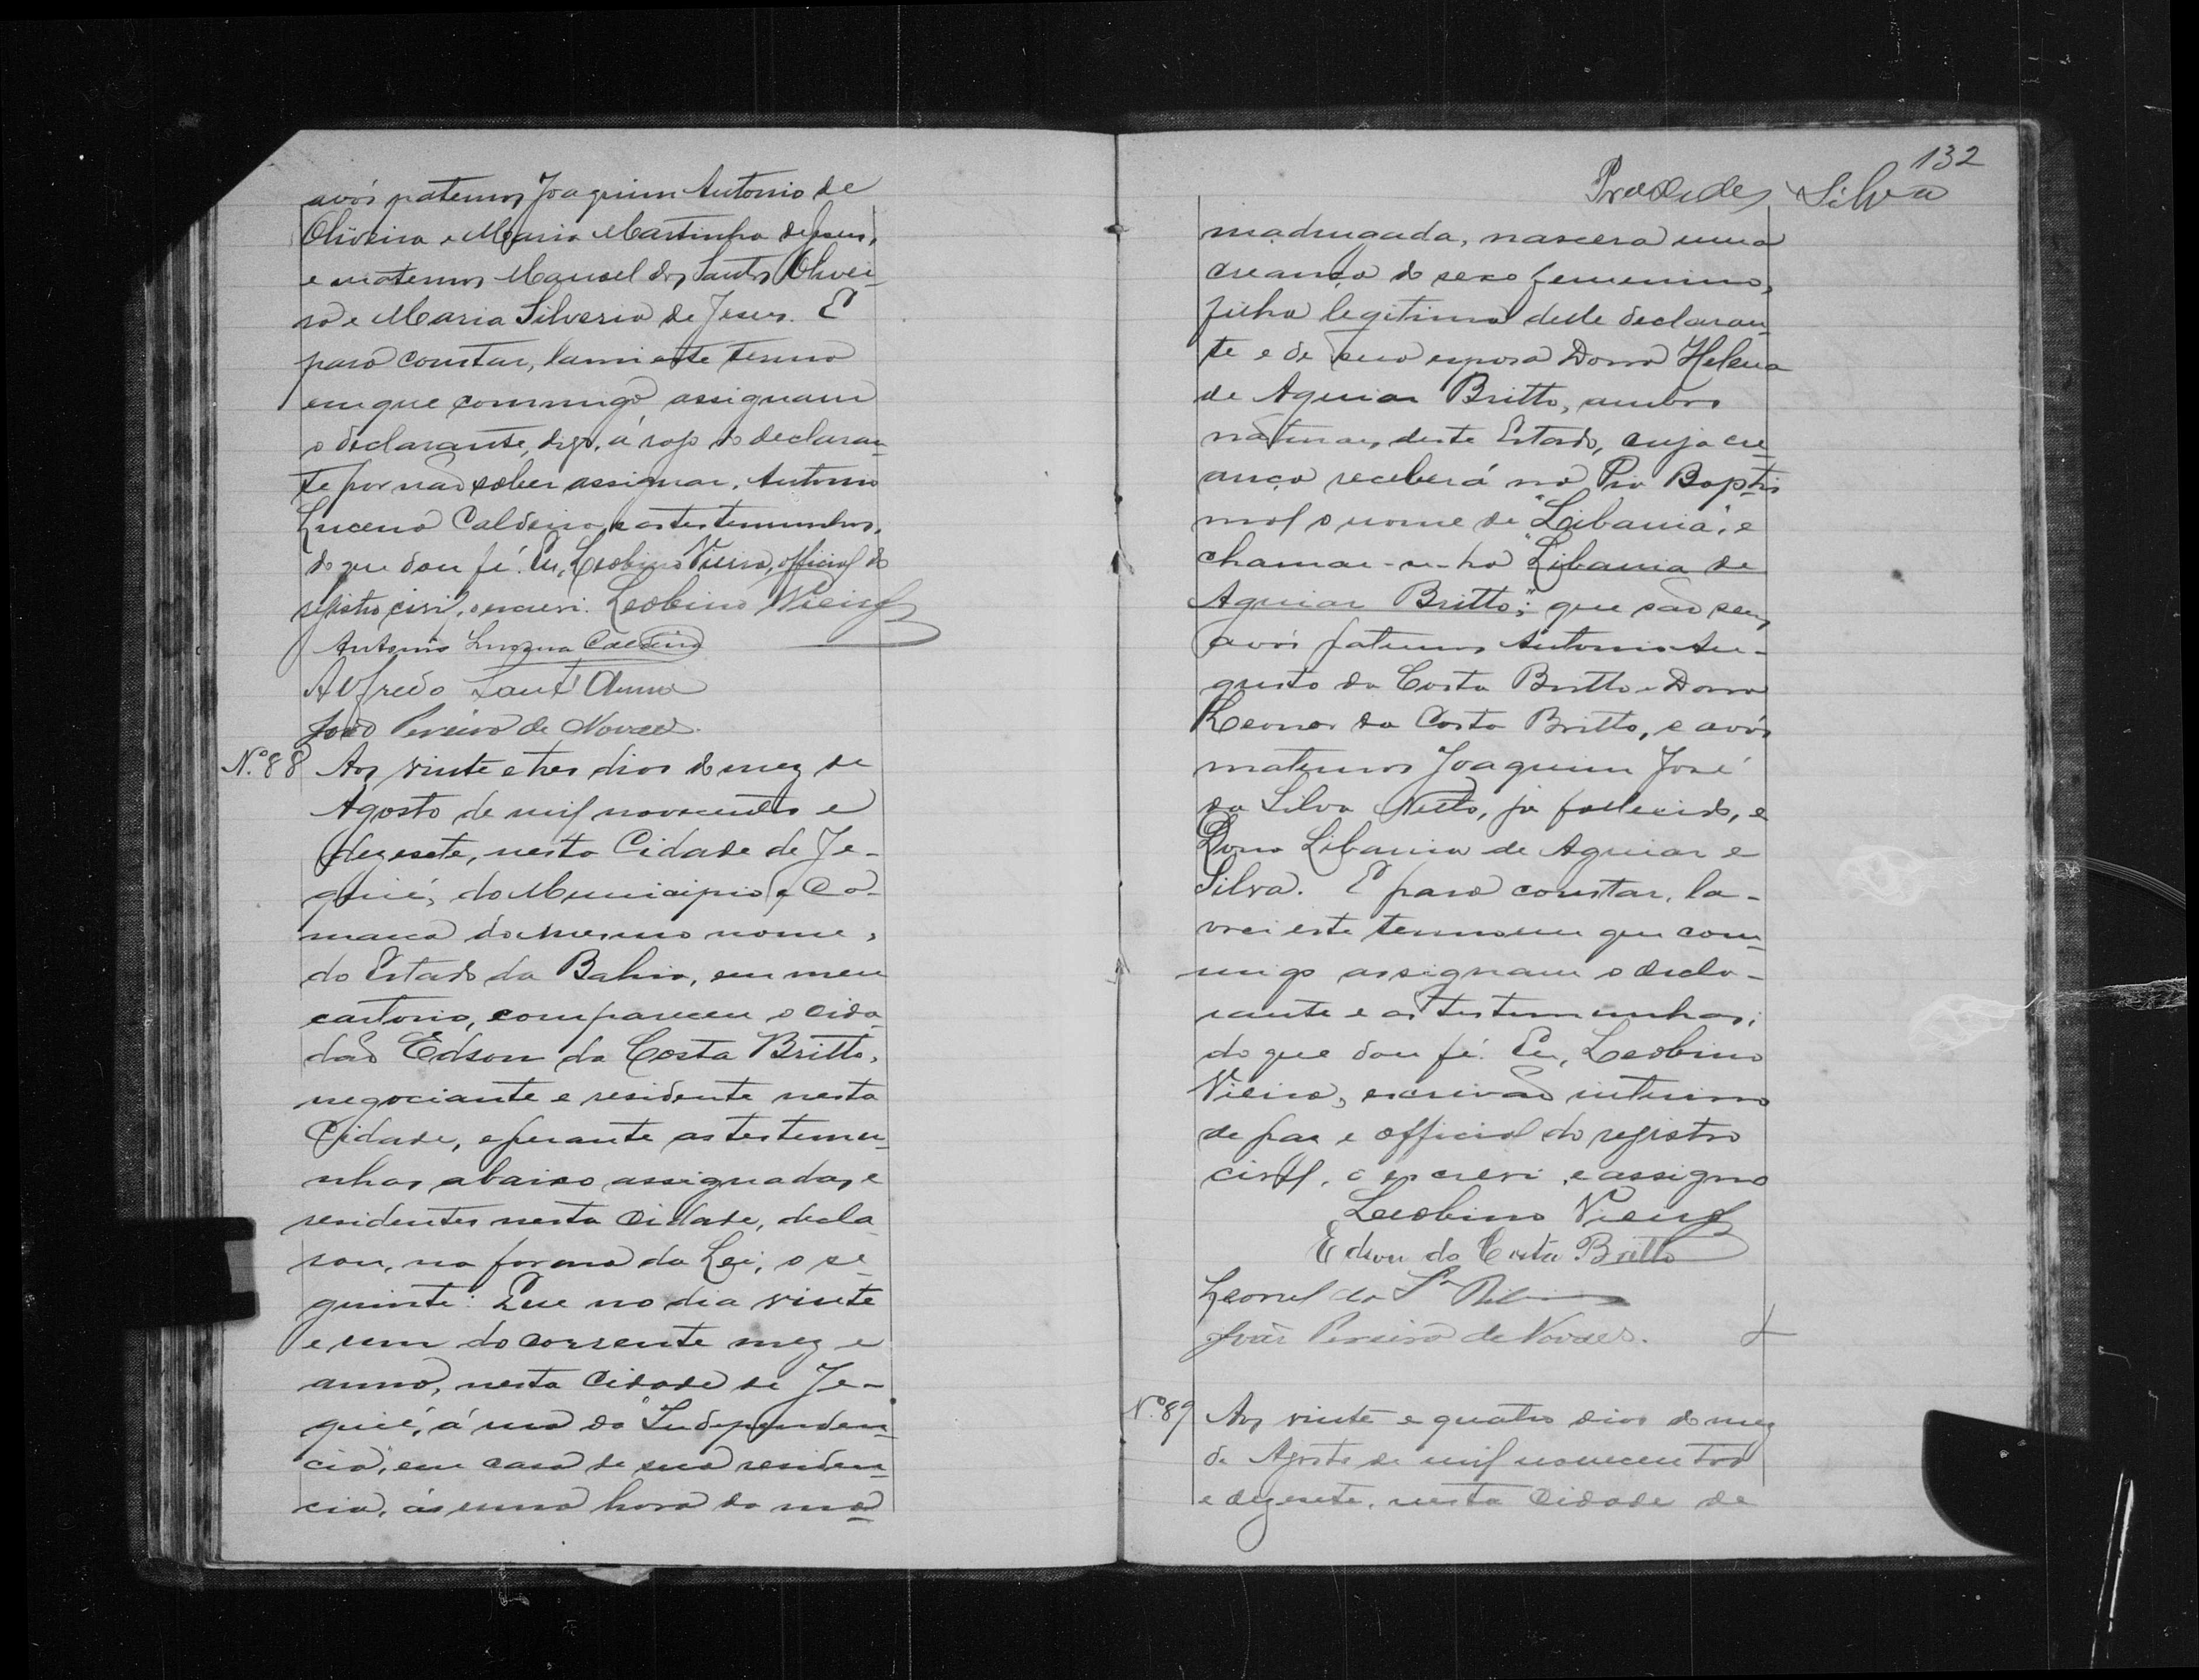 avós paternos Joaquim Antonio de
Oliveira e Maria Martinha de Jesus,
e maternos Manoel dos Santos Olivei-
ra e Maria Silveria de Jesus. E
para constar, lavrei este termo
em que commigo assignam
o declarante, digo, á rogo do declaran-
te por não saber assignar, Antonio
Lucena Caldeira, e as testemunhas,
do que dou fé. Eu, Leobino Vieira, official do
registro civil, o escrevi. Leobino Vieira
Antonio Lucena Caldeira
Alfredo Sant'Anna
João Pereira de Novaes.
N.º 88 Aos vinte e tres dias do mez de
Agosto de mil novecentos e
dezesete, nesta Cidade de Je-
quié, do Municipio e Co-
marca do mesmo nome,
do Estado da Bahia, em meu
cartorio, compareceu o cida-
dão Edson da Costa Britto,
negociante e residente nesta
Cidade, e perante as testemu-
nhas abaixo assignadas, e
residentes nesta Cidade, decla-
rou, na forma da Lei, o se-
guinte: Que no dia vinte
e um do corrente mez e
anno, nesta Cidade de Je-
quié, á rua da "Independen-
cia", em casa de sua residen-
cia, ás uma hora da ma-
132
Silva
madrugada, nascera uma
creança do sexo femenino,
filha legitima delle declaran-
te e de sua esposa Dona Helena
de Aguiar Britto, ambos
naturaes deste Estado, cuja cre-
ança receberá na Pia Baptis
mal o nome de "Libania", e
chamar-se-ha "Libania de
Aguiar Britto"; que são seus
avós paternos Antonio Au-
gusto da Costa Britto e Dona
Leonor da Costa Britto, e avós
maternos Joaquim José
da Silva Netto, já fallecido, e
Dona Libania de Aguiar e
Silva. E para constar, la-
vrei este termo em que com-
migo assignam o decla-
rante e as testemunhas;
do que dou fé. Eu, Leobino
Vieira, escrivão interino
de paz e official do registro
civil, o escrevi e assigno
Leobino Vieira
Edson da Costa Britto
Leonel da
João Pereira de Novaes.
N.º 89 Aos vinte e quatro dias do mez
de Agosto de mil novecentos
e dezesete, nesta Cidade de